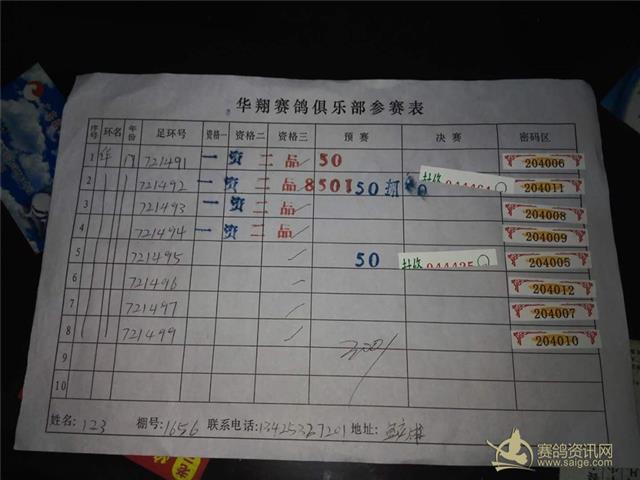 华翔赛鸽俱乐部参赛表
序号 环名 年份 足环号 资格一 资格二 资格三 预赛 决赛 密码区
1 华 721491 一 资 二 品 50 204006
2 721492 一 资 二 品 8501 50 204011
3 721493 一 资 二 品 204008
4 721494 一 资 二 品 204009
5 721495 50 204005
6 721496 204012
7 721497 204007
8 721499 204010
9
10
姓名: 123 棚号: 1656 联系电话: 地址:
赛鸽资讯网
www.saige.com